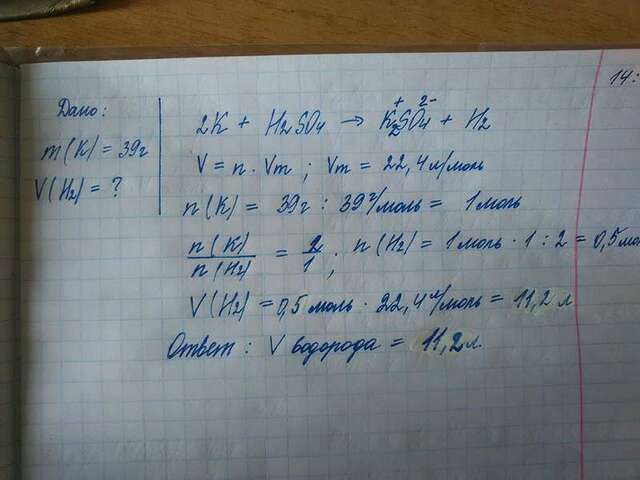 14:
Дано:
m(K) = 39г
V(H₂) = ?
2K + H₂SO₄ → K₂⁺SO₄²⁻ + H₂
V = n · Vm ; Vm = 22,4 л/моль
n(K) = 39г : 39 г/моль = 1моль
n(K)/n(H₂) = 2/1 ; n(H₂) = 1моль · 1 : 2 = 0,5мол
V(H₂) = 0,5 моль · 22,4 л/моль = 11,2 л
Ответ : V водорода = 11,2л.